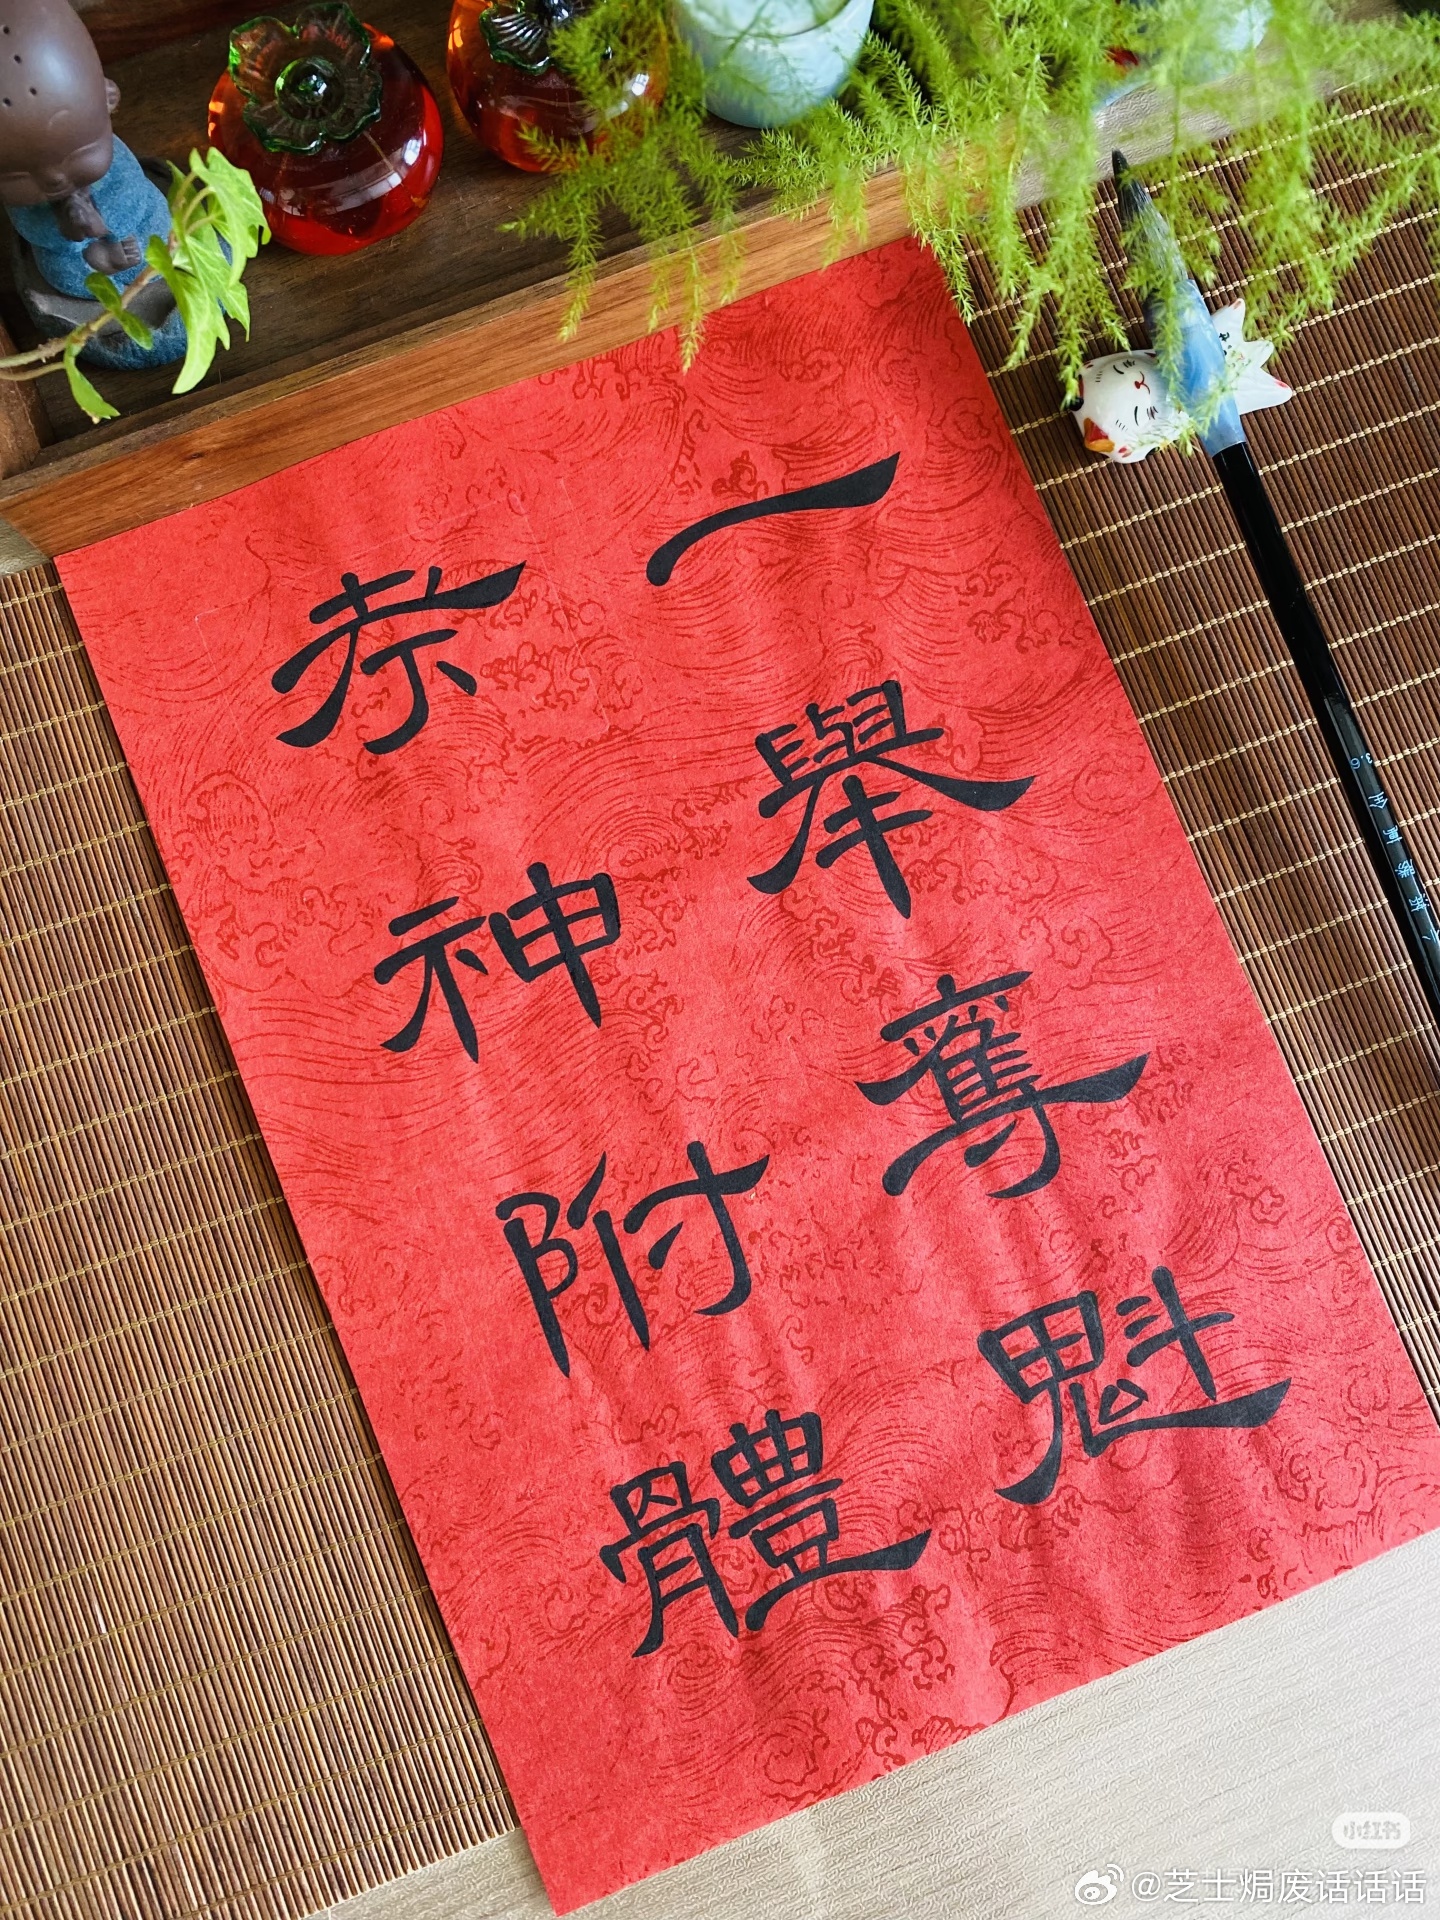 一舉奪魁
考神附體
小红书
@芝士焗废话话话